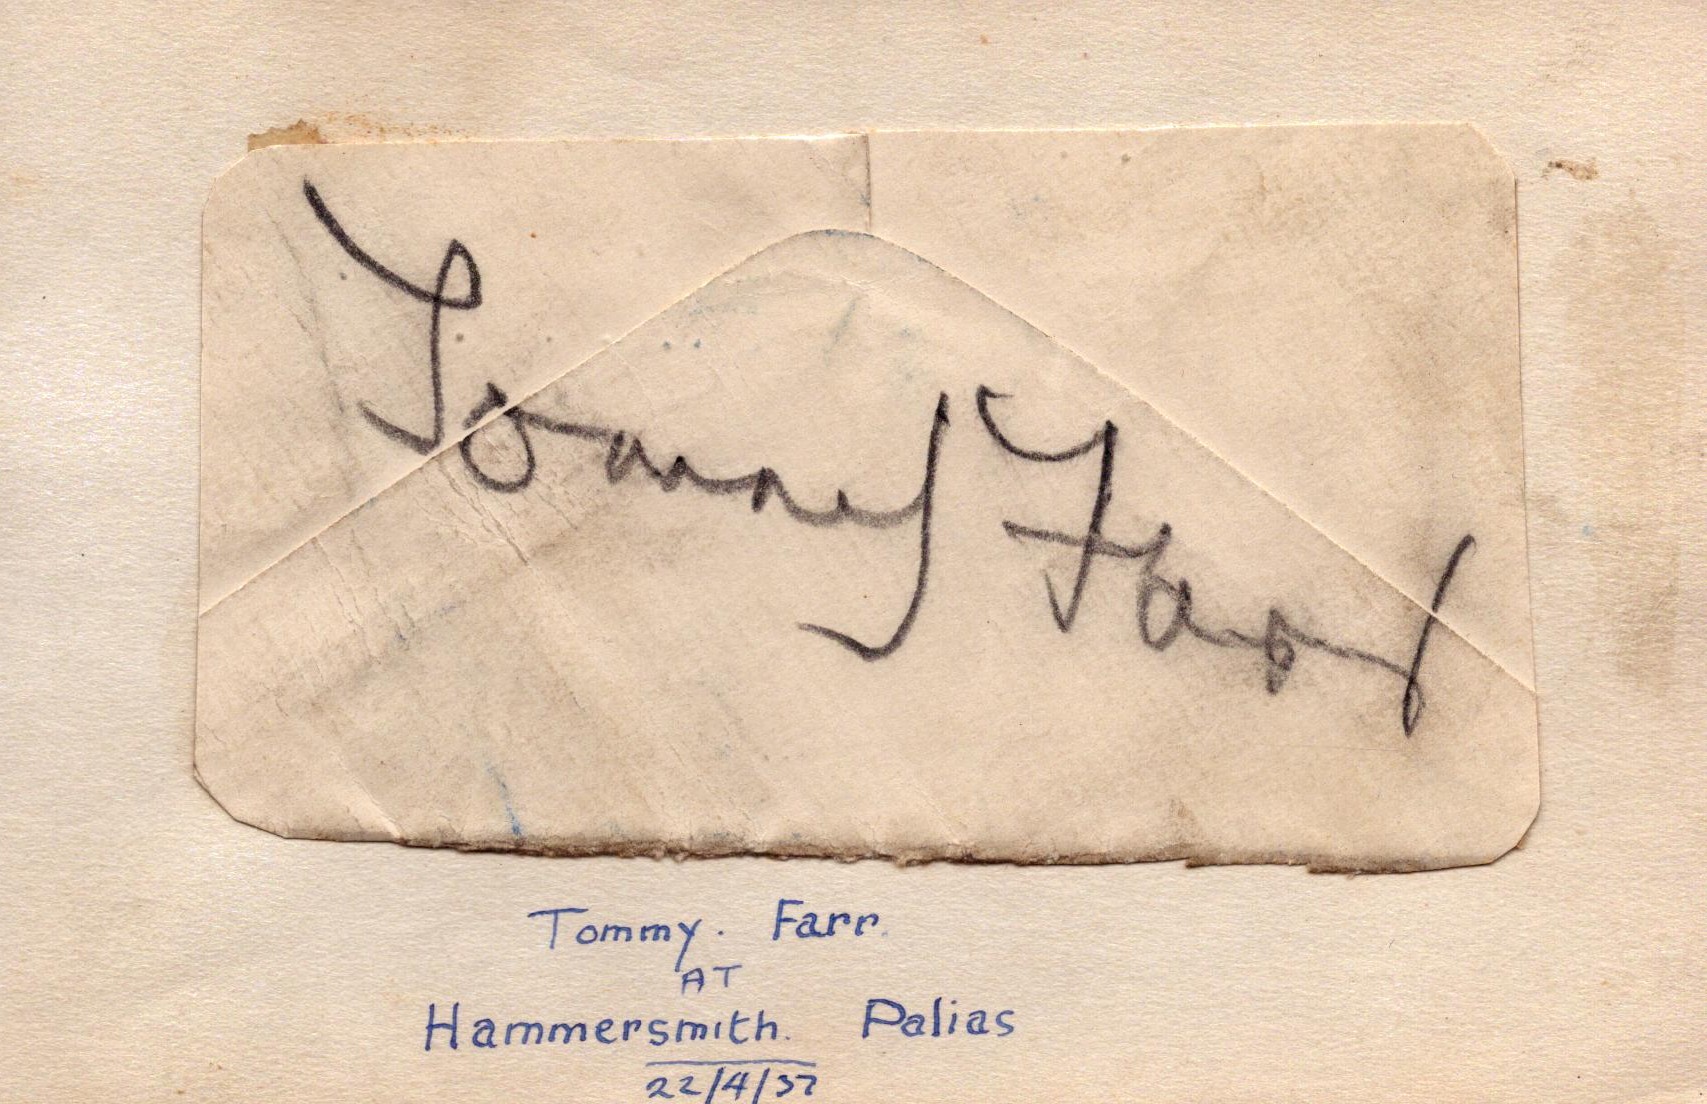 Tommy Farr
Tommy. Farr.
AT
Hammersmith. Palias
22/4/37